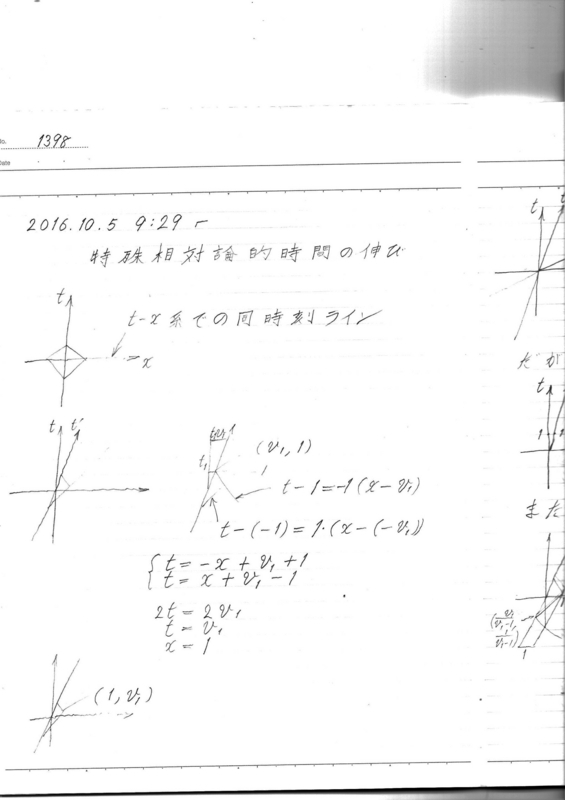 No. 1398
Date
2016.10.5 9:29
特殊相対論的時間の伸び
t
t-x系での同時刻ライン
x
t t'
t₁
(v₁, 1)
t-1=-1(x-v₁)
t-(-1)=1·(x-(-v₁))
{t=-x+v₁+1
t=x+v₁-1
2t=2v₁
t=v₁
x=1
(1, v₁)
t
だが
t
1
また